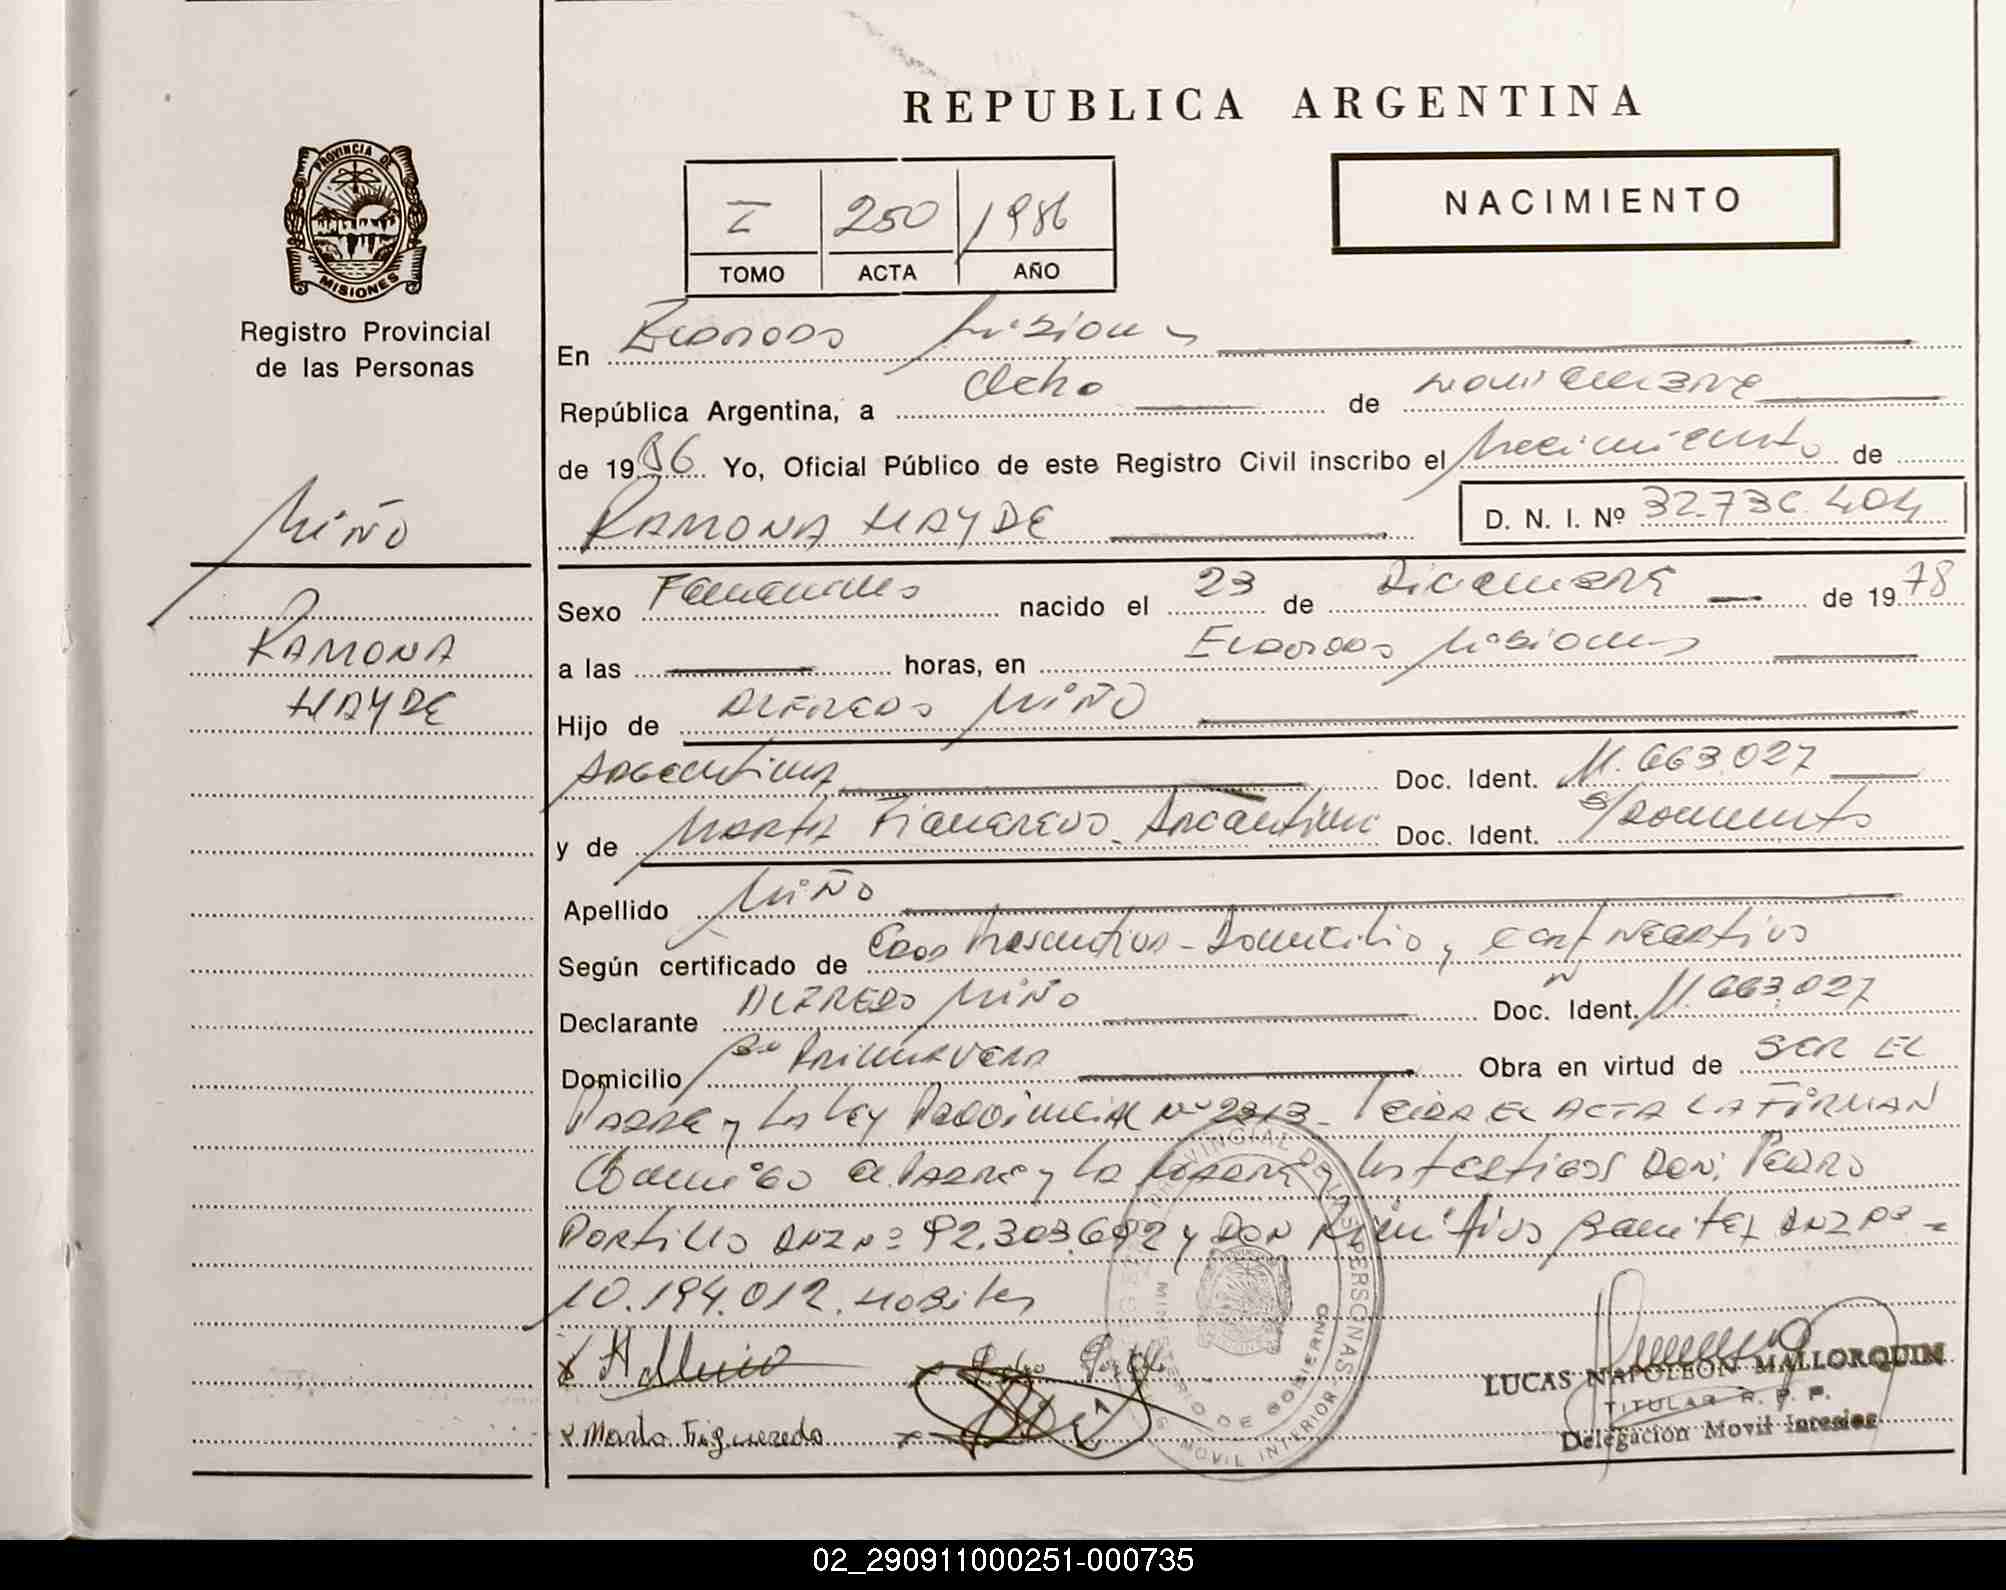 REPUBLICA ARGENTINA
PROVINCIA DE
MISIONES
Registro Provincial
de las Personas
I 250 1986
TOMO ACTA AÑO
NACIMIENTO
En Eldorado Misiones
República Argentina, a Ocho de Noviembre
de 1986 Yo, Oficial Público de este Registro Civil inscribo el Nacimiento de
RAMONA HAYDE D. N. I. Nº 32.736.404
Miño
RAMONA
HAYDE
Sexo Femenino nacido el 23 de Diciembre de 1978
a las horas, en Eldorado Misiones
Hijo de ALFREDO MIÑO
Argentina Doc. Ident. M. 663.027
y de Marta Figueredo Argentina Doc. Ident. s/Documento
Apellido Miño
Según certificado de Edad Presuntiva - Domicilio y cert Negativo
Declarante ALFREDO MIÑO Doc. Ident. M. 663.027
Domicilio Bº Primavera Obra en virtud de SER EL
PADRE y La Ley Provincial Nº 2213 - LEIDA EL ACTA LA FIRMAN
Conmigo el PADRE y La MADRE y los testigos DON: PEDRO
Portillo DNI Nº 92.303.692 y DON Primitivo Benitez DNI Nº -
10.194.012. Habiles
x A Miño x Pedro Portillo
x Marta Figueredo x
REGISTRO PROVINCIAL DE LAS PERSONAS
MINISTERIO DE GOBIERNO
MOVIL INTERIOR
LUCAS NAPOLEON MALLORQUIN
TITULAR R. P. P.
Delegación Movil Interior
02_290911000251-000735